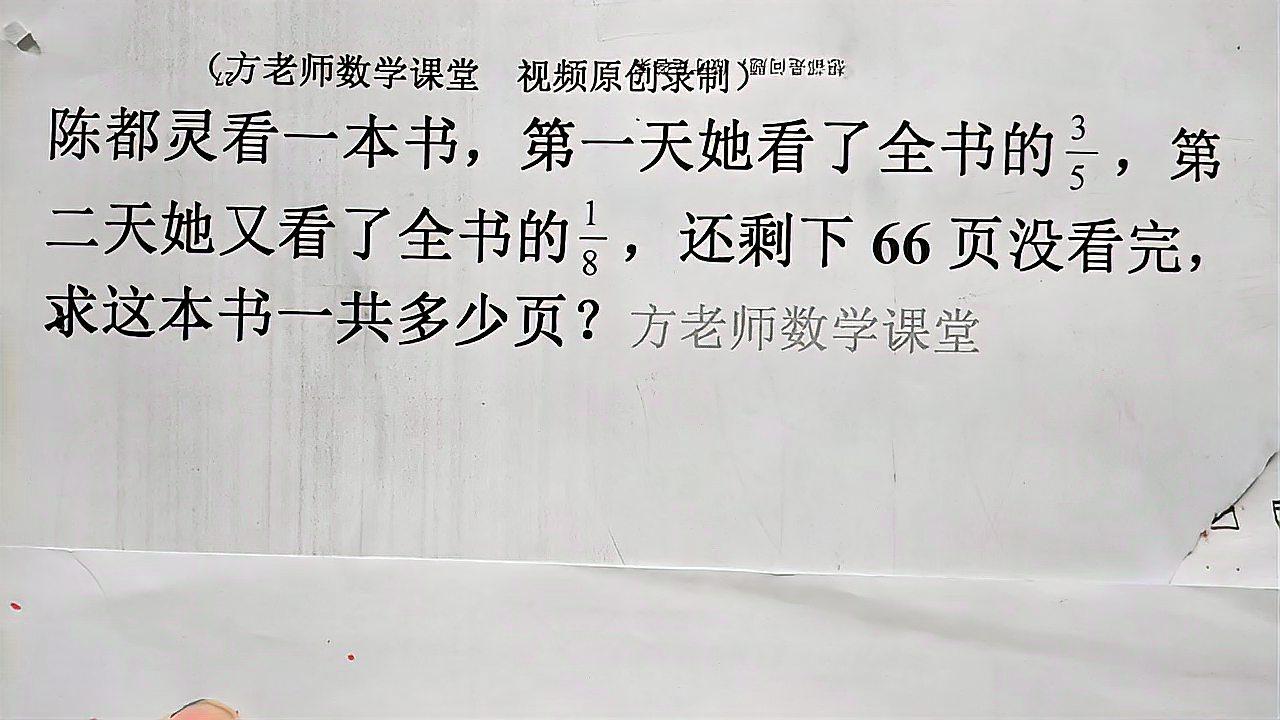 （方老师数学课堂 视频原创录制）
陈都灵看一本书，第一天她看了全书的3/5，第
二天她又看了全书的1/8，还剩下66页没看完，
求这本书一共多少页？方老师数学课堂